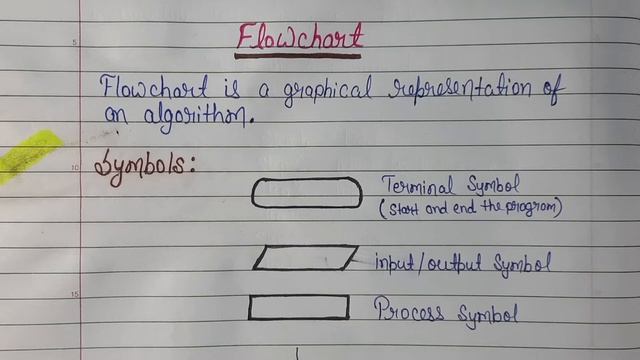 Flowchart
5
Flowchart is a graphical representation of
an algorithm.
10
Symbols:
Terminal Symbol
(Start and end the program)
input/output Symbol
15
Process Symbol